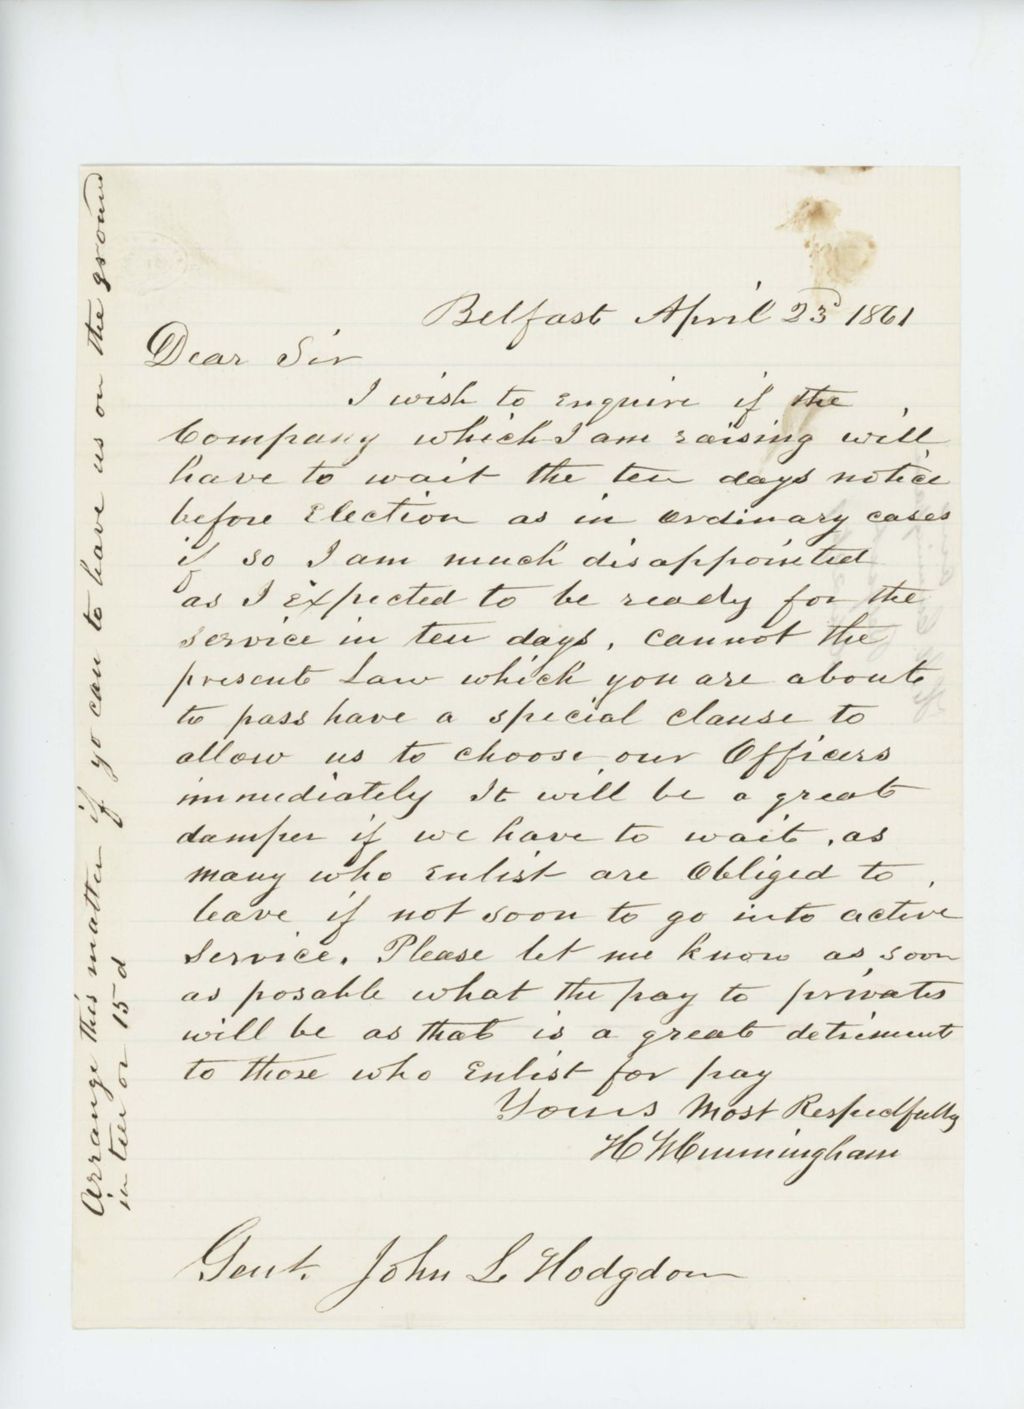 Belfast April 23d 1861
Dear Sir
I wish to enquire if the
Company which I am raising will
have to wait the ten days notice
before Election as in ordinary cases
if so I am much disappointed
as I expected to be ready for the
service in ten days, cannot the
present Law which you are about
to pass have a special clause to
allow us to choose our Officers
immediately It will be a great
damper if we have to wait, as
many who Enlist are Obliged to
leave if not soon to go into active
service. Please let me know as soon
as posable what the pay to privates
will be as that is a great detriment
to those who Enlist for pay
Yours Most Respectfully
H W Cunningham
Genl. John L Hodgdon
Arrange this matter if yo can to have us on the ground
in ten or 15 d